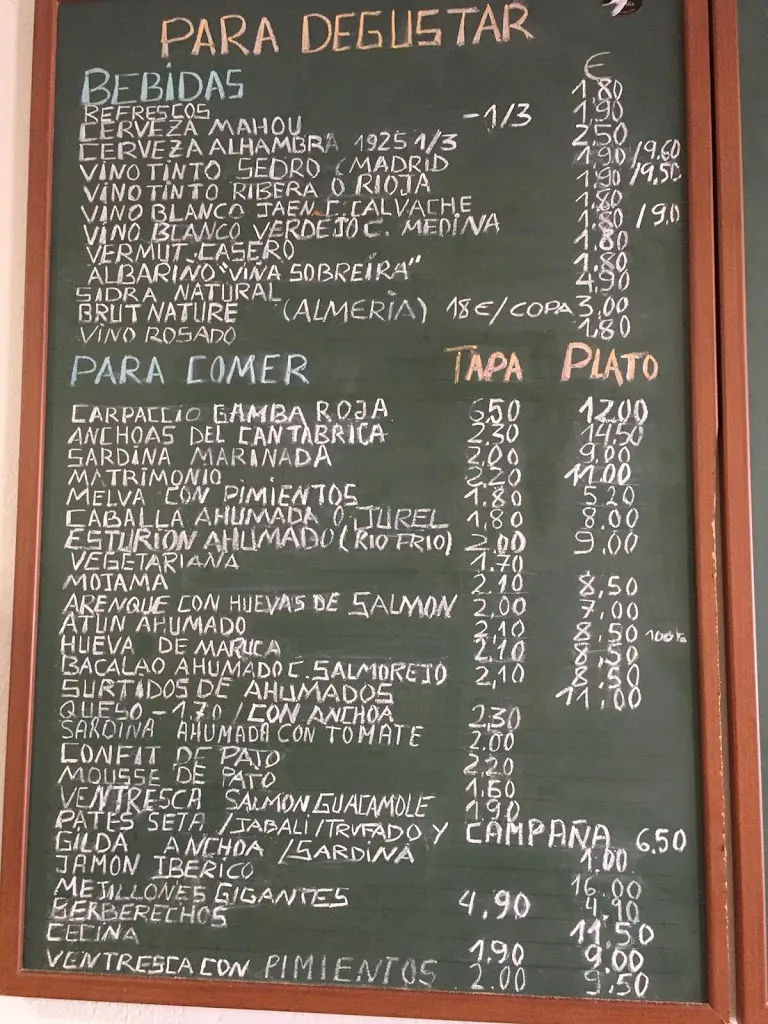 PARA DEGUSTAR
BEBIDAS €
REFRESCOS 1,80
CERVEZA MAHOU -1/3 1,90
CERVEZA ALHAMBRA 1925 1/3 2,50
VINO TINTO SEDRO (MADRID 1,90 /9.60
VINO TINTO RIBERA O RIOJA 1,90 /9,50
VINO BLANCO JAEN C. CALVACHE 1,80
VINO BLANCO VERDEJO C. MEDINA 1,80 /9,0
VERMUT CASERO 1,80
ALBARIÑO "VIÑA SOBREIRA" 1,80
SIDRA NATURAL 4,90
BRUT NATURE (ALMERIA) 18€/COPA 3,00
VINO ROSADO 1,80
PARA COMER TAPA PLATO
CARPACCIO GAMBA ROJA 6,50 12.00
ANCHOAS DEL CANTABRICA 2.30 14.50
SARDINA MARINADA 2,00 9,00
MATRIMONIO 2,20 11.00
MELVA CON PIMIENTOS 1.80 5.20
CABALLA AHUMADA O JUREL 1,80 8.00
ESTURION AHUMADO (RIO FRIO) 2.00 9,00
VEGETARIANA 1.70
MOJAMA 2.10 8,50
ARENQUE CON HUEVAS DE SALMON 2,00 7,00
ATUN AHUMADO 2,10 8,50
HUEVA DE MARUCA 2,10 8,50
BACALAO AHUMADO C. SALMOREJO 2,10 8.50
SURTIDOS DE AHUMADOS 11,00
QUESO - 1.70 / CON ANCHOA 2,30
SARDINA AHUMADA CON TOMATE 2.00
CONFIT DE PATO 2,20
MOUSSE DE PATO 1.60
VENTRESCA SALMON GUACAMOLE 1,90
PATES SETA /JABALI/TRUFADO Y CAMPAÑA 6.50
GILDA ANCHOA /SARDINA 1.00
JAMON IBERICO 16,00
MEJILLONES GIGANTES 4,90 4,90
BERBERECHOS 11,50
CECINA 1.90 9,00
VENTRESCA CON PIMIENTOS 2.00 9,50